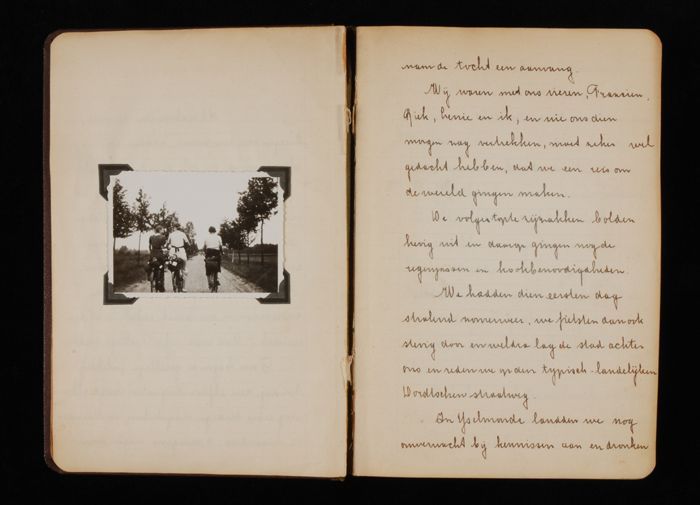 nam de tocht een aanvang.
Wij waren met ons vieren, Francien,
Riek, Lenie en ik, en wie ons dien
morgen zag vertrekken, moet zeker wel
gedacht hebben, dat we een reis om
de wereld gingen maken.
De volgestopte zijzakken bolden
hevig uit en daarop gingen nog de
regenjassen en kookbenoodigdheden.
We hadden dien eersten dag
stralend zomerweer, we fietsten dan ook
stevig door en weldra lag de stad achter
ons en reden we op den typisch-landelijken
straatweg.
In IJselmonde landden we nog
onverwacht bij kennissen aan en dronken